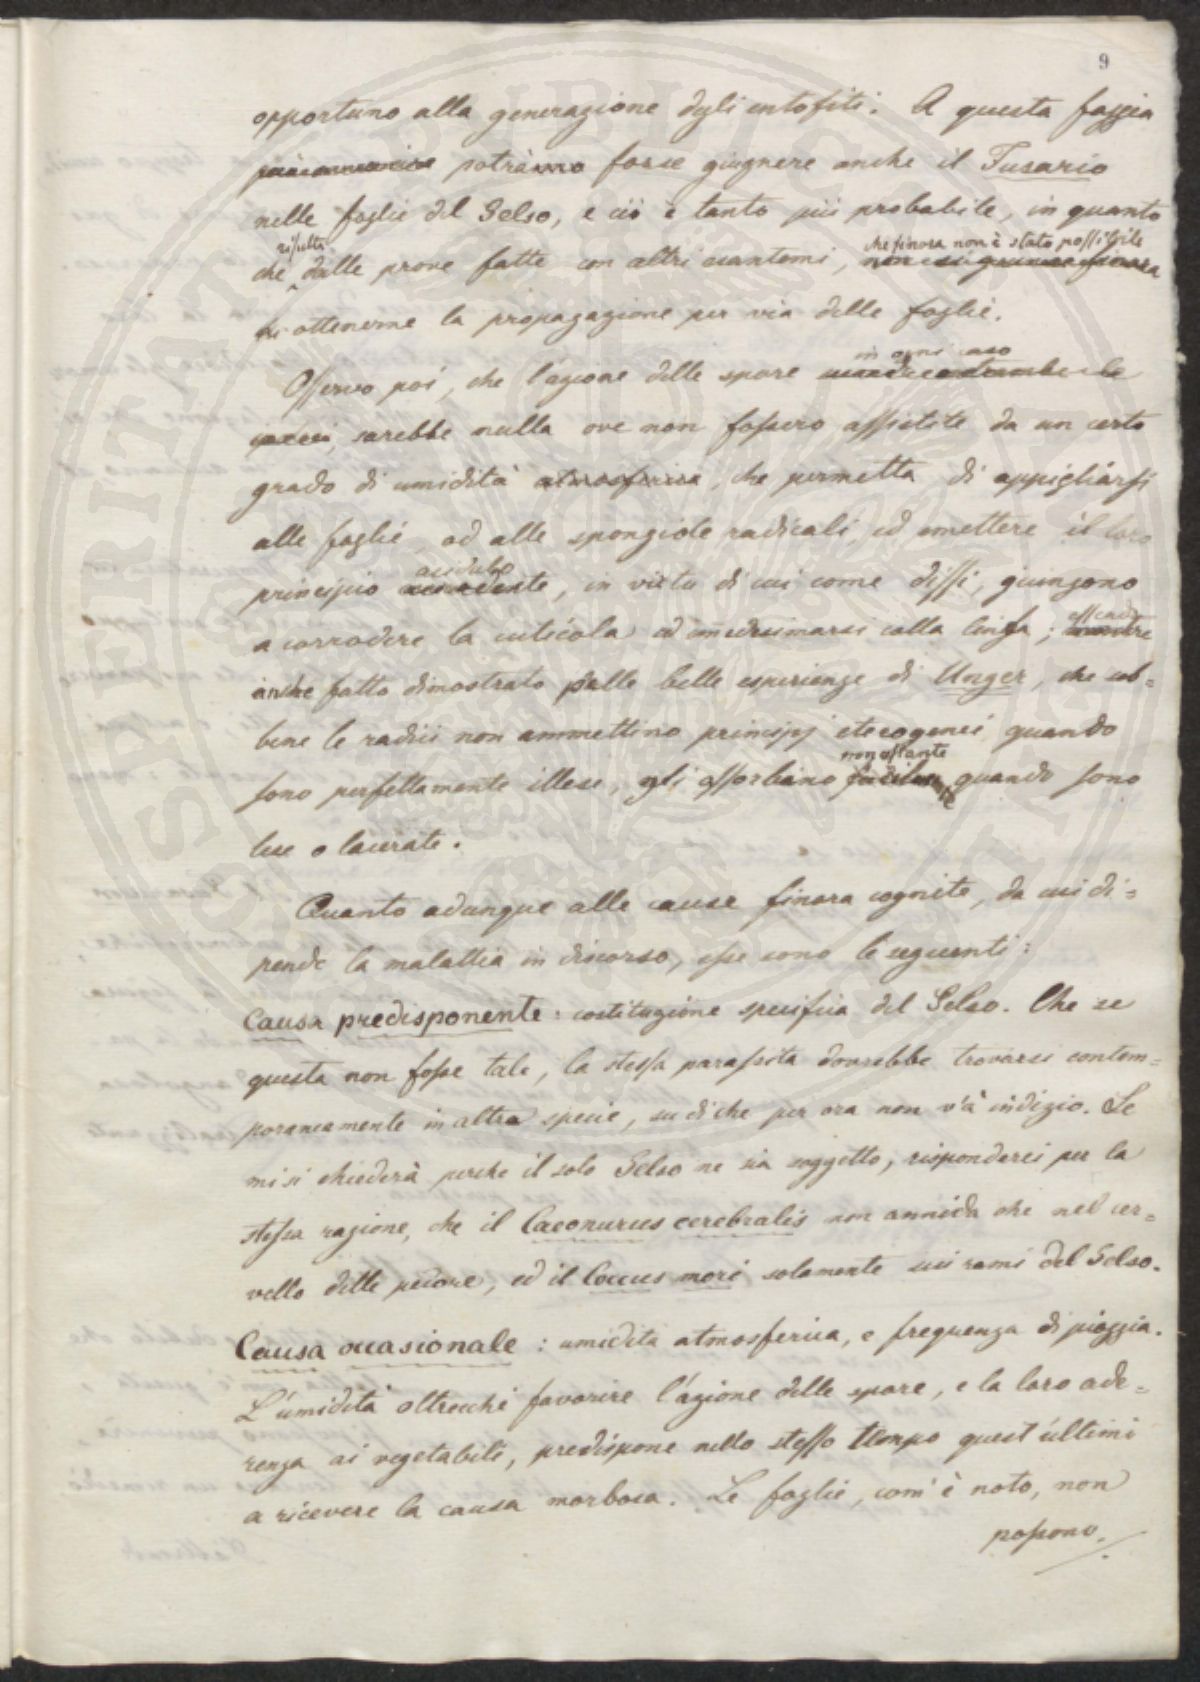 9
opportuno alla generazione degli entofiti. A questa foggia
potranno forse giugnere anche il Fusario
nelle foglie del Gelso, e ciò è tanto più probabile, in quanto
risulta che finora non è stato possibile
che dalle prove fatte con altri esantemi,
ottenerne la propagazione per via delle foglie.
in ogni caso
Osservo poi, che l'azione delle spore
sarebbe nulla ove non fossero assistite da un certo
grado di umidità atmosferica, che permetta di appigliarsi
alle foglie, od alle spongiole radicali, ed emettere il loro
acidulo
principio, in virtù di cui come dissi, giungono
essendo
a corrodere la cuticola ed immedesimarsi colla linfa;
anche fatto dimostrato dalle belle esperienze di Unger, che seb-
bene le radici non ammettino principj eterogenei quando
nonostante
sono perfettamente illese, gli assorbino quando sono
lese o lacerate.
Quanto adunque alle cause finora cognite, da cui di-
pende la malattia in discorso, esse sono le seguenti:
Causa predisponente: costituzione specifica del Gelso. Che se
questa non fosse tale, la stessa parassita dovrebbe trovarsi contem-
poraneamente in altra specie, su di che per ora non v'à indizio. Se
mi si chiederà perchè il solo Gelso ne sia soggetto, risponderei per la
stessa ragione, che il Caenurus cerebralis non annida che nel cer-
vello delle pecore, ed il Coccus mori solamente sui rami del Gelso.
Causa occasionale: umidità atmosferica, e frequenza di pioggia.
L'umidità oltrecchè favorire l'azione delle spore, e la loro ade-
renza ai vegetabili, predispone nello stesso tempo quest'ultimi
a ricevere la causa morbosa. Le foglie, com'è noto, non
possono